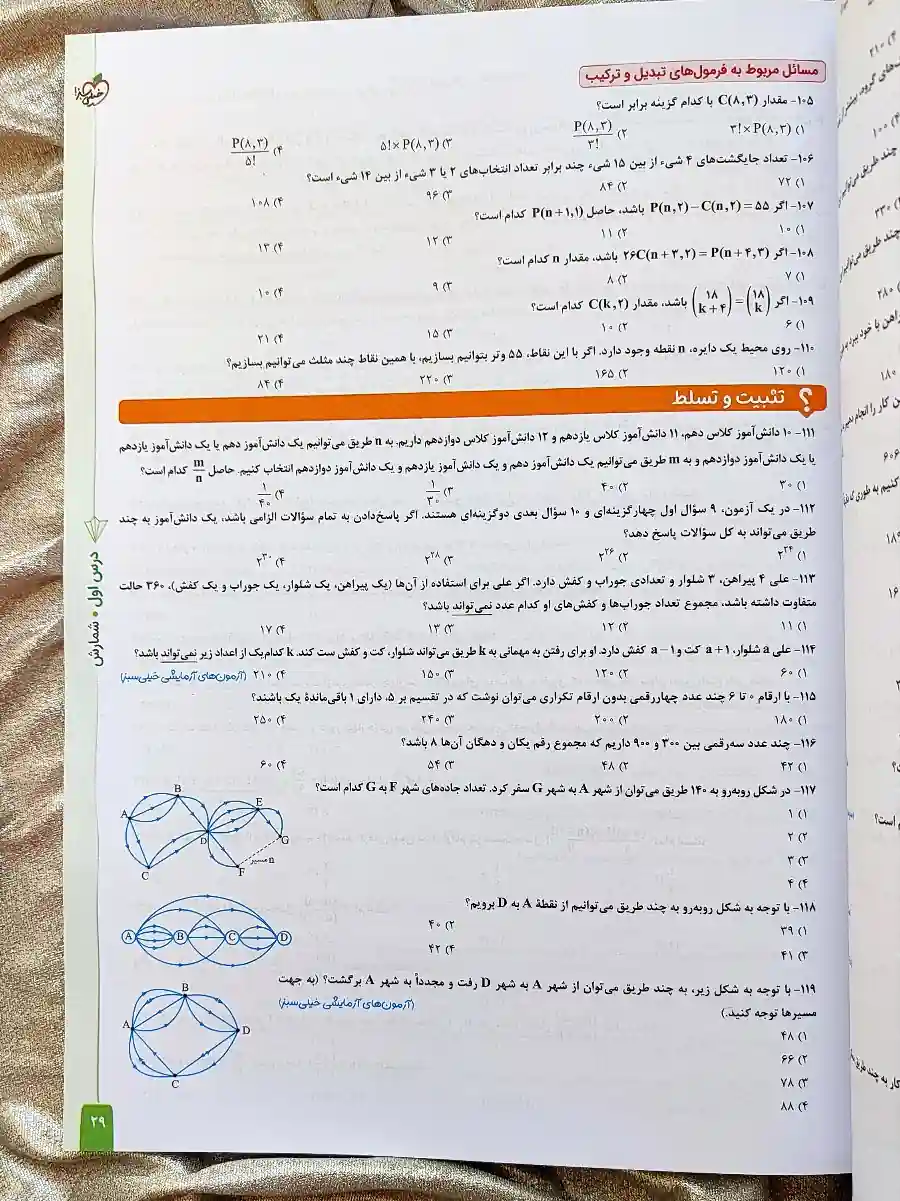 خیلی سبز
مسائل مربوط به فرمول‌های تبدیل و ترکیب
۱۰۵- مقدار C(۸,۳) با کدام گزینه برابر است؟
۱) ۳!×P(۸,۳) ۲) P(۸,۳)/۳! ۳) ۵!×P(۸,۳) ۴) P(۸,۳)/۵!
۱۰۶- تعداد جایگشت‌های ۴ شیء از بین ۱۵ شیء چند برابر تعداد انتخاب‌های ۲ یا ۳ شیء از بین ۱۴ شیء است؟
۱) ۷۲ ۲) ۸۴ ۳) ۹۶ ۴) ۱۰۸
۱۰۷- اگر P(n,۲)−C(n,۲)=۵۵ باشد، حاصل P(n+۱,۱) کدام است؟
۱) ۱۰ ۲) ۱۱ ۳) ۱۲ ۴) ۱۳
۱۰۸- اگر ۲۶C(n+۳,۲)=P(n+۴,۳) باشد، مقدار n کدام است؟
۱) ۷ ۲) ۸ ۳) ۹ ۴) ۱۰
۱۰۹- اگر (۱۸ k)=(۱۸ k+۴) باشد، مقدار C(k,۲) کدام است؟
۱) ۶ ۲) ۱۰ ۳) ۱۵ ۴) ۲۱
۱۱۰- روی محیط یک دایره، n نقطه وجود دارد. اگر با این نقاط، ۵۵ وتر بتوانیم بسازیم، با همین نقاط چند مثلث می‌توانیم بسازیم؟
۱) ۱۲۰ ۲) ۱۶۵ ۳) ۲۲۰ ۴) ۸۴
؟ تثبیت و تسلط
۱۱۱- ۱۰ دانش‌آموز کلاس دهم، ۱۱ دانش‌آموز کلاس یازدهم و ۱۲ دانش‌آموز کلاس دوازدهم داریم. به n طریق می‌توانیم یک دانش‌آموز دهم یا یک دانش‌آموز یازدهم
یا یک دانش‌آموز دوازدهم و به m طریق می‌توانیم یک دانش‌آموز دهم و یک دانش‌آموز یازدهم و یک دانش‌آموز دوازدهم انتخاب کنیم. حاصل m/n کدام است؟
۱) ۳۰ ۲) ۴۰ ۳) ۱/۳۰ ۴) ۱/۴۰
۱۱۲- در یک آزمون، ۹ سؤال اول چهارگزینه‌ای و ۱۰ سؤال بعدی دوگزینه‌ای هستند. اگر پاسخ‌دادن به تمام سؤالات الزامی باشد، یک دانش‌آموز به چند
طریق می‌تواند به کل سؤالات پاسخ دهد؟
۱) ۲^۲۴ ۲) ۲^۲۶ ۳) ۲^۲۸ ۴) ۲^۳۰
۱۱۳- علی ۴ پیراهن، ۳ شلوار و تعدادی جوراب و کفش دارد. اگر علی برای استفاده از آن‌ها (یک پیراهن، یک شلوار، یک جوراب و یک کفش)، ۳۶۰ حالت
متفاوت داشته باشد، مجموع تعداد جوراب‌ها و کفش‌های او کدام عدد نمی‌تواند باشد؟
۱) ۱۱ ۲) ۱۲ ۳) ۱۳ ۴) ۱۷
۱۱۴- علی a شلوار، a+۱ کت و a−۱ کفش دارد. او برای رفتن به مهمانی به k طریق می‌تواند شلوار، کت و کفش ست کند. k کدام‌یک از اعداد زیر نمی‌تواند باشد؟
۱) ۶۰ ۲) ۱۲۰ ۳) ۱۵۰ ۴) ۲۱۰ (آزمون‌های آزمایشی خیلی‌سبز)
۱۱۵- با ارقام ۰ تا ۶ چند عدد چهاررقمی بدون ارقام تکراری می‌توان نوشت که در تقسیم بر ۵، دارای باقی‌ماندهٔ یک باشند؟
۱) ۱۸۰ ۲) ۲۰۰ ۳) ۲۴۰ ۴) ۲۵۰
۱۱۶- چند عدد سه‌رقمی بین ۳۰۰ و ۹۰۰ داریم که مجموع رقم یکان و دهگان آن‌ها ۸ باشد؟
۱) ۴۲ ۲) ۴۸ ۳) ۵۴ ۴) ۶۰
۱۱۷- در شکل روبه‌رو به ۱۴۰ طریق می‌توان از شهر A به شهر G سفر کرد. تعداد جاده‌های شهر F به G کدام است؟
۱) ۱
۲) ۲
۳) ۳
۴) ۴
A B C D E F G
n مسیر
۱۱۸- با توجه به شکل روبه‌رو به چند طریق می‌توانیم از نقطهٔ A به D برویم؟
۱) ۳۹ ۲) ۴۰
۳) ۴۱ ۴) ۴۲
A B C D
۱۱۹- با توجه به شکل زیر، به چند طریق می‌توان از شهر A به شهر D رفت و مجدداً به شهر A برگشت؟ (به جهت
مسیرها توجه کنید.) (آزمون‌های آزمایشی خیلی‌سبز)
۱) ۴۸
۲) ۶۶
۳) ۷۸
۴) ۸۸
A B C D
درس اول • شمارش
۲۹